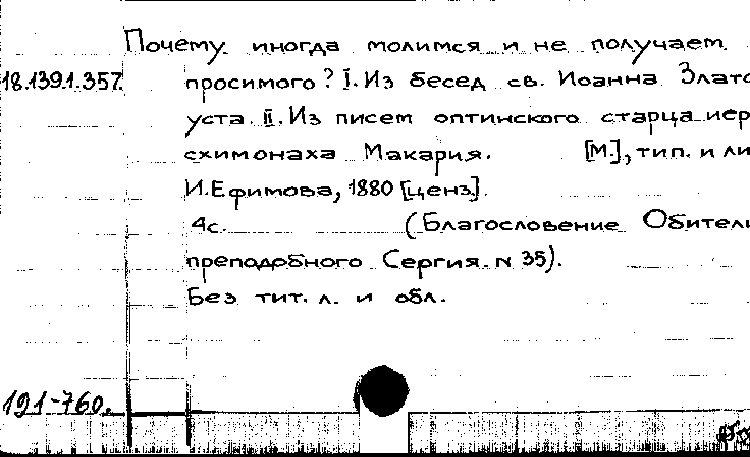 Почему иногда молимся и не получаем
18.139.1.357. просимого? I. Из бесед св. Иоанна Злато
уста II. Из писем оптинского старца иер
схимонаха Макария. [М.], тип. и ли
И.Ефимова, 1880 [ценз].
4с. (Благословение Обители
преподобного Сергия. N 35).
Без тит. л. и обл.
191-760.